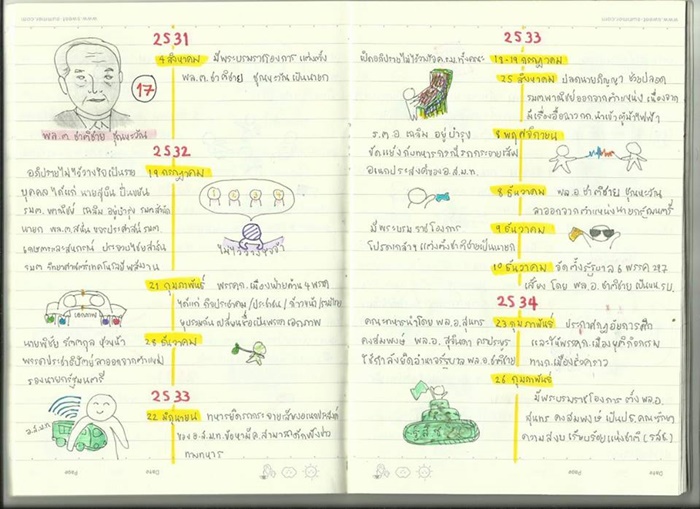 2531
4 สิงหาคม มีพระบรมราชโองการ แต่งตั้ง
พล.ต. ชาติชาย ชุณหะวัณ เป็นนายก
17
พล.ต. ชาติชาย ชุณหะวัณ
2532
อภิปรายไม่ไว้วางใจเป็นราย 19 กรกฎาคม
บุคคล ได้แก่ นายสุบิน ปิ่นขยัน
รมต. พาณิชย์ เฉลิม อยู่บำรุง รมต.สำนัก
นายก
รมต. วิทยาศาสตร์เทคโนโลยีพลังงาน
1 2 3 4
ไม่ไว้วางใจ
21 กุมภาพันธ์ พรรคก.เมืองฝ่ายค้าน 4 พรรค
ได้แก่ กิจประชาคม/ประชาชน/ก้าวหน้า/รวมไทย
ยุบรวมกัน เปลี่ยนชื่อเป็นพรรคเอกภาพ
เอกภาพ
นายพิชัย รัตตกุล หัวหน้า 28 ธันวาคม
พรรคประชาธิปัตย์ลาออกจากตำแหน่ง
รองนายกรัฐมนตรี
2533
22 มิถุนายน ทหารยึดรถกระจายเสียงเอนกประสงค์
ของ อ.ส.ม.ท. ข้อหามีค.สามารถดักฟังข่าว
ทางทหาร
อ.ส.ม.ท
2533
เปิดอภิปรายไม่ไว้วางใจ ค.ร.ม. ทั้งคณะ 18-19 กรกฎาคม
25 สิงหาคม ปลดนายอภิญญา ช่วยปลอด
รมต.พาณิชย์ออกจากตำแหน่ง เนื่องจาก
มีเรื่องอื้อฉาวจาก
ร.ต.อ. เฉลิม อยู่บำรุง 8 พฤศจิกายน
ขัดแย้งกับทหารกรณีรถกระจายเสียง
อเนกประสงค์ของ อ.ส.ม.ท.
8 ธันวาคม พล.อ ชาติชาย ชุณหะวัณ
ลาออกจากตำแหน่งนายกรัฐมนตรี
มีพระบรมราชโองการ 9 ธันวาคม
โปรดเกล้าฯ แต่งตั้งชาติชายเป็นนายก
10 ธันวาคม จัดตั้งรัฐบาล 6 พรรค 227
เสียง โดย พล.อ. ชาติชาย เป็นนายก รบ.
2534
คณะทหารนำโดย พล.อ.สุนทร 23 กุมภาพันธ์ ประกาศกฎอัยการศึก
คงสมพงษ์ พล.อ. สุจินดา คราประยูร และให้พรรคก.เมืองยุติกิจกรรม
ใช้กำลังยึดอำนาจรัฐบาล พล.อ.ชาติชาย ทางก.เมืองชั่วคราว
26 กุมภาพันธ์
มีพระบรมราชโองการ ตั้ง พล.อ.
สุนทร คงสมพงษ์ เป็นปธ. คณะรักษา
ความสงบ เรียบร้อยแห่งชาติ (รสช.)
รสช
Date
Page
Date
Page